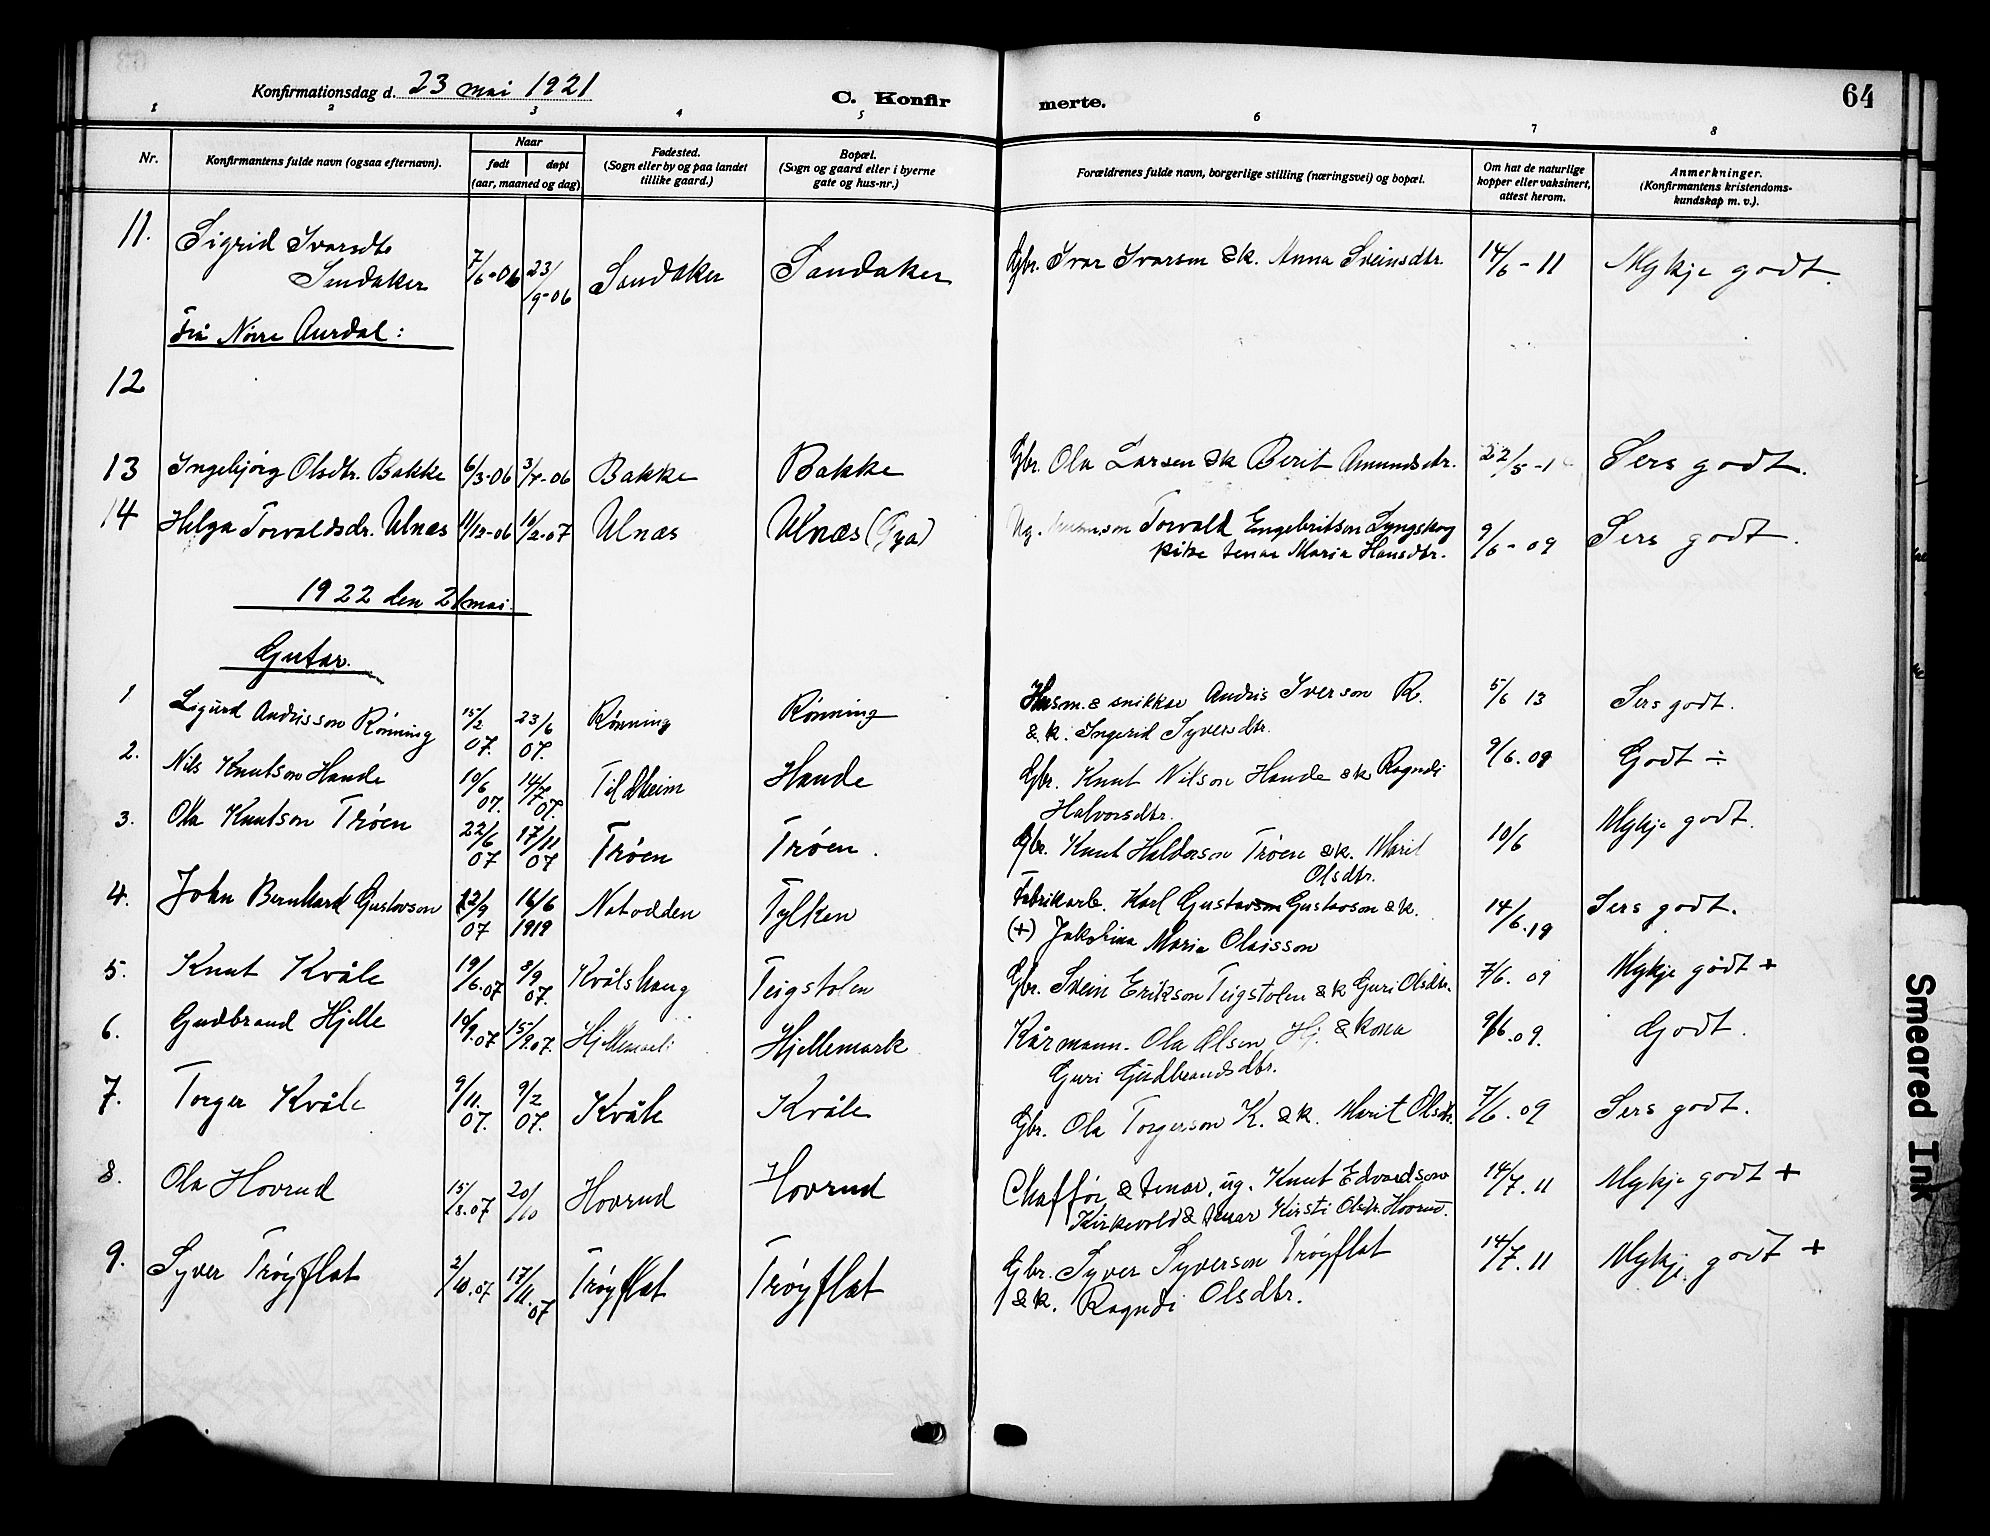 Konfirmationsdag d. 23 mai 1921
C. Konfir merte.
64
1 2 3 4 5 6 7 8
Nr.
Konfirmantens fulde navn (ogsaa efternavn).
Naar
født døpt
(aar, maaned og dag)
Fødested.
(Sogn eller by og paa landet
tillike gaard.)
Bopæl.
(Sogn og gaard eller i byerne
gate og hus-nr.)
Forældrenes fulde navn, borgerlige stilling (næringsvei) og bopæl.
Om hat de naturlige
kopper eller vaksinert,
attest herom.
Anmerkninger.
(Konfirmantens kristendoms-
kundskap m. v.).
11. Sigrid Ivarsdtr
Sandaker 7/6-06 23/9-06 Sandaker Sandaker Gbr. Ivar Ivarson & k. Anna Sveinsdtr. 14/6-11 Mykje godt.
Frå Nørre Aurdal:
12
13 Ingebjørg Olsdtr. Bakke 6/3-06 3/4-06 Bakke Bakke Gbr. Ola Larsen & k Berit Amundsdtr. 22/5-1 Sers godt.
14 Helga Torvaldsdr. Ulnæs 11/12-06 10/2-07 Ulnæs Ulnæs Ug. Torvald Engebritson Lyngskog
pike tenar Maria Hansdtr. 9/6-09 Sers godt.
1922 den 21 mai.
Gutar.
1 Sigurd Andrisson Rønning 15/2 07. 23/6 07. Rønning Rønning Husm. & snikkar Andris Iverson R.
& k. Ingerid Syversdtr. 5/6 13 Sers godt.
2. Nils Knutson Hande 10/6 07. 14/7 07. Tildheim Hande Gbr. Knut Nilson Hande & k Ragndi
Halvorsdtr. 9/6.09 Godt ÷
3. Ola Knutson Trøen 22/6 07 17/11 07 Trøen Trøen. Gbr. Knut Haldorson Trøen & k. Marit
Olsdtr. 10/6 Mykje godt.
4. John Bernhard Gustavson 22/9 07 16/6 1919 Notodden Tylken Fabrikarb. Karl Gustavson Gustavson & k.
(+) Jakobina Maria Olaisson 14/6.19 Sers godt.
5. Knut Kvåle 19/6.07 8/9 07. Kvålshaug Teigstolen Gbr. Svein Erikson Teigstolen & k Guri Olsdtr. 7/6.09 Mykje godt +
6. Gudbrand Hjelle 14/9.07 15/9.07. Hjellemark Kårmann. Ola Olson Hj. & kona
Guri Gudbrandsdtr. 9/6.09. Godt.
7. Torger Kvåle 9/11. 07. 9/2 07. Kvåle Kvåle Gbr. Ola Torgerson K. & k. Marit Olsdtr. 7/6.09 Sers godt.
8. Ola Hovrud 15/8.07 20/10 Hovrud Hovrud Chaffør & tenar, ug. Knut Edvardson
Kirkevold & tenar Kirsti Olsdr. Hovrud. 14/7.11 Mykje godt +
9. Syver Trøyflat 2/10.07 17/11.07 Trøyflat Trøyflat Gbr. Syver Syverson Trøyflat
& k. Ragndi Olsdtr. 14/7.11 Mykje godt +
Smeared Ink